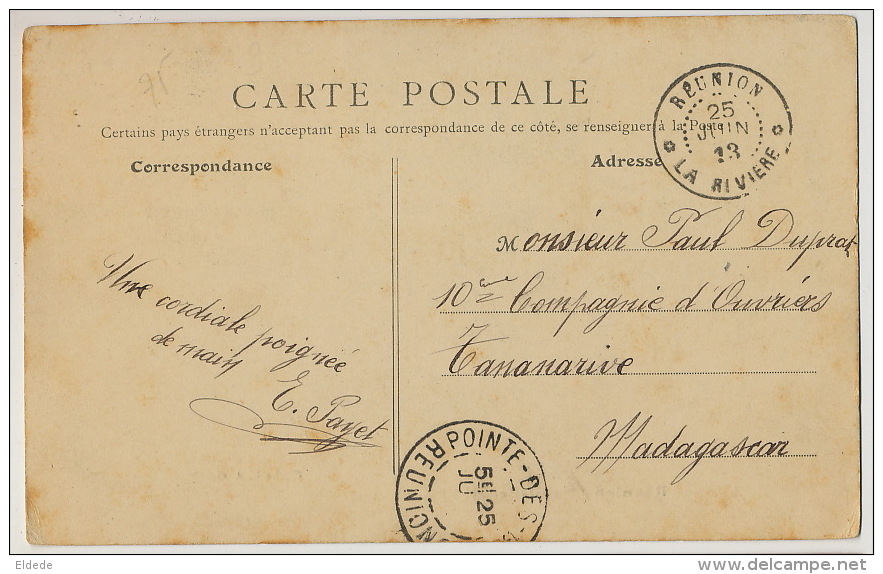 CARTE POSTALE
Certains pays étrangers n'acceptent pas la correspondance de ce côté, se renseigner à la Poste
Correspondance
Adresse
RÉUNION
25
JUIN
13
LA RIVIÈRE
Monsieur Paul Duprat
10ème Compagnie d'Ouvriers
Tananarive
Madagascar
Une cordiale poignée
de main
E. Payet
POINTE-DES-
5E 25
JU
REUNION
Eldede
delcampe.net